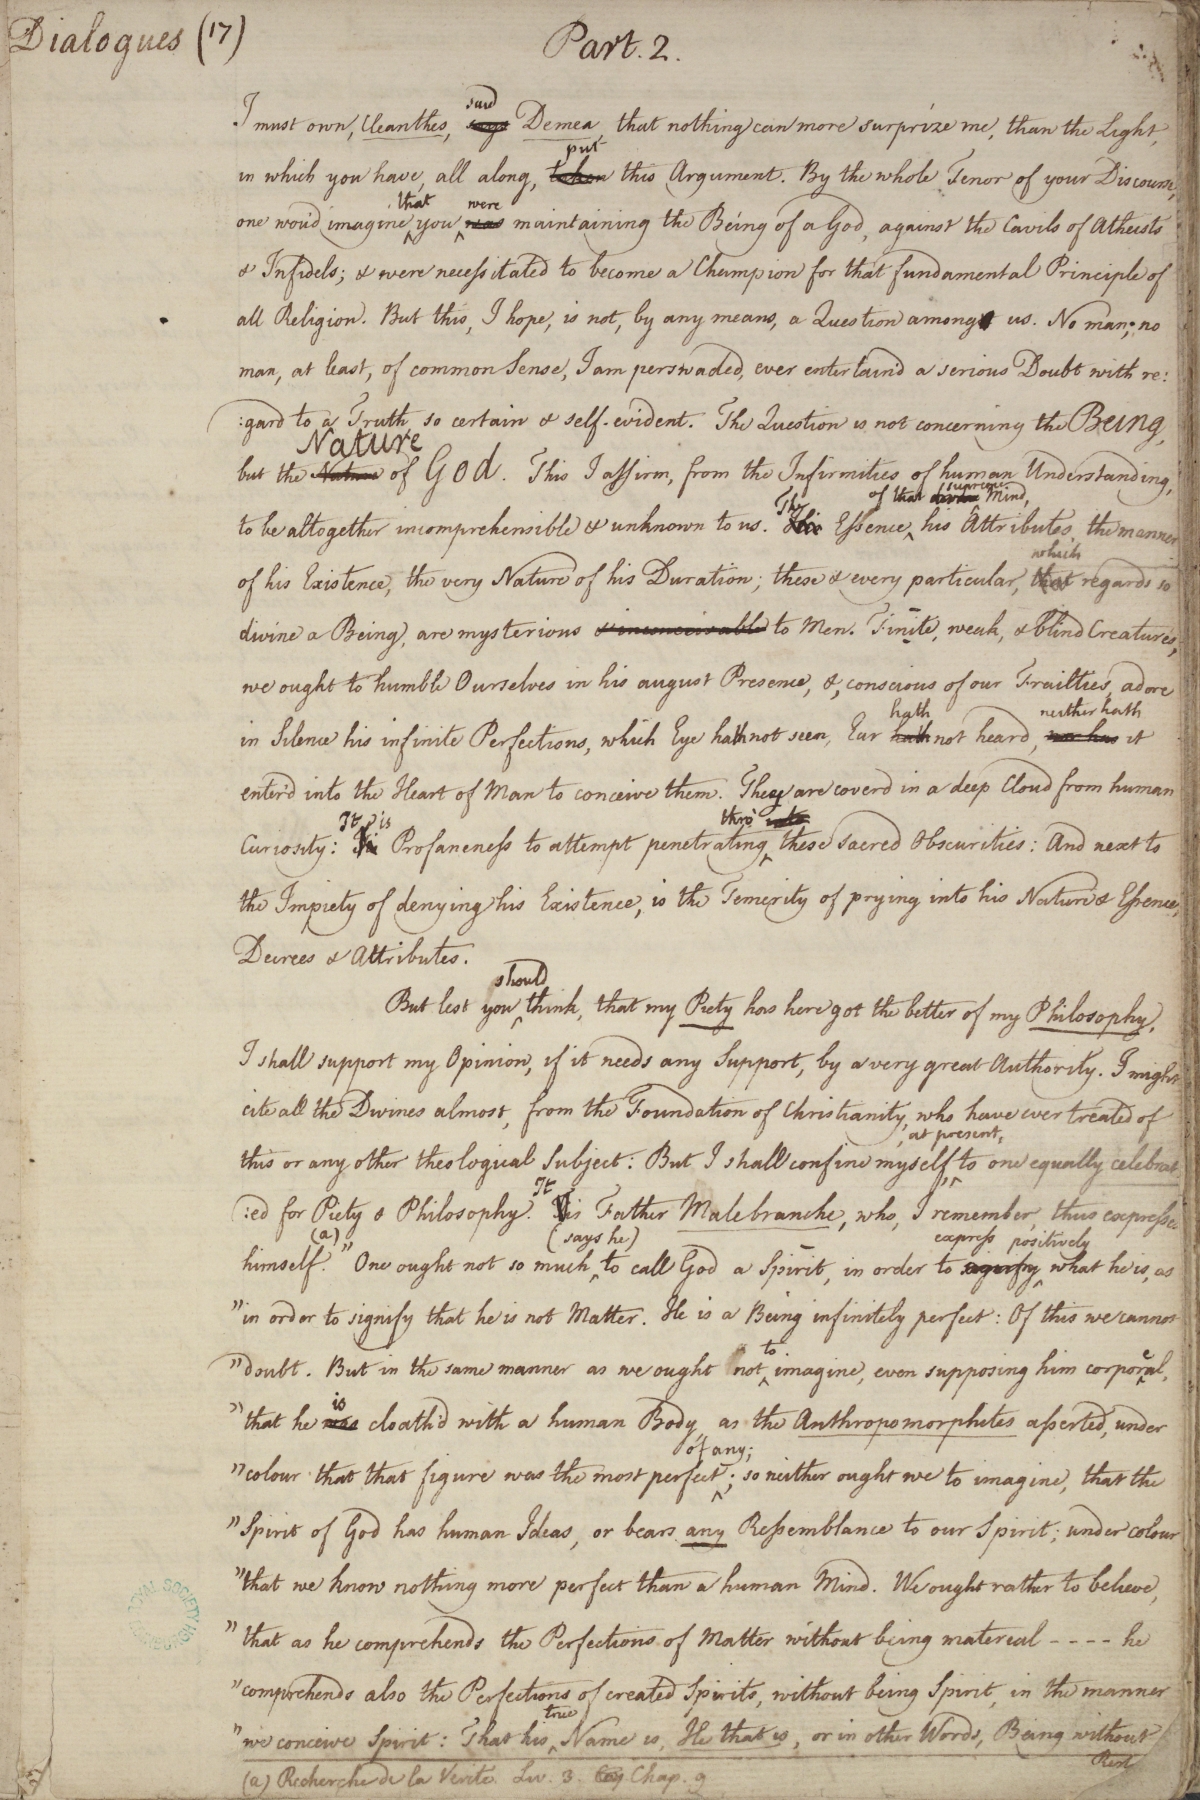 Dialogues (17)
Part. 2.
said
I must own, Cleanthes, says Demea, that nothing can more surprize me, than the Light,
put
in which you have, all along, taken this Argument. By the whole Tenor of your Discourse,
that were
one wou'd imagine you was maintaining the Being of a God, against the Cavils of Atheists
& Infidels; & were necessitated to become a Champion for that fundamental Principle of
all Religion. But this, I hope, is not, by any means, a Question among us. No man; no
man, at least, of common Sense, I am perswaded, ever entertain'd a serious Doubt with re:
:gard to a Truth, so certain & self-evident. The Question is not concerning the Being,
Nature
but the Nature of God. This I affirm, from the Infirmities of human Understanding,
The of that divine supreme Mind,
to be altogether incomprehensible & unknown to us. His Essence, his Attributes, the manner
which
of his Existence, the very Nature of his Duration; these & every particular, that regards so
divine a Being, are mysterious & inconceivable to Men. Finite, weak, & blind Creatures,
we ought to humble Ourselves in his august Presence, &, conscious of our Frailties, adore
hath neither hath
in Silence his infinite Perfections, which Eye hath not seen, Ear hath not heard, nor has it
enter'd into the Heart of Man to conceive them. They are cover'd in a deep Cloud from human
It is thro' into
Curiosity: Tis Profaneness to attempt penetrating these sacred Obscurities: And next to
the Impiety of denying his Existence, is the Temerity of prying into his Nature & Essence,
Decrees & Attributes.
should
But lest you think, that my Piety has here got the better of my Philosophy,
I shall support my Opinion, if it needs any Support, by a very great Authority. I might
cite all the Divines almost, from the Foundation of Christianity, who have ever treated of
at present,
this or any other theological Subject: But I shall confine myself, to one equally celebrat
:ed for Piety & Philosophy. It
Tis Father Malebranche, who, I remember, thus expresses
(a) (says he) express positively
himself. " One ought not so much to call God a Spirit, in order to signify what he is, as
" in order to signify that he is not Matter. He is a Being infinitely perfect: Of this we cannot
to
" doubt. But in the same manner as we ought not imagine, even supposing him corporeal,
is
" that he was cloath'd with a human Body, as the Anthropomorphites asserted, under
of any;
" colour that that figure was the most perfect; so neither ought we to imagine, that the
" Spirit of God has human Ideas, or bears any Ressemblance to our Spirit; under colour
" that we know nothing more perfect than a human Mind. We ought rather to believe,
" that as he comprehends the Perfections of Matter without being matereal - - - - he
" comprehends also the Perfections of created Spirits, without being Spirit, in the manner
true
" we conceive Spirit: That his Name is, He that is, or in other Words, Being without
Rest
(a) Recherche de la Verité. Liv. 3. Chap. 9